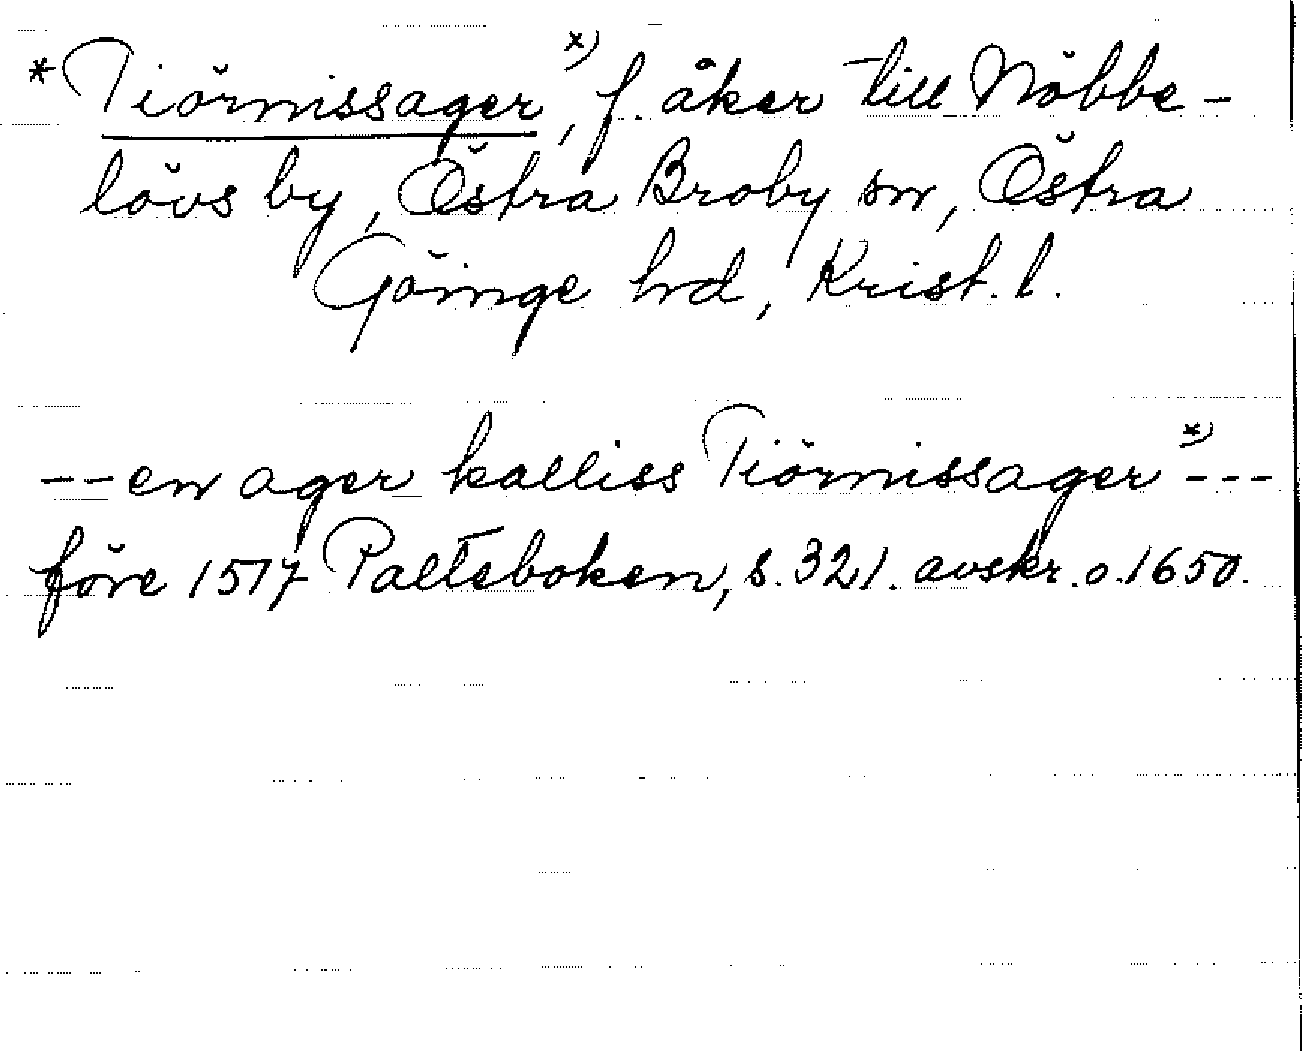 *Tiörnissager x), f. åker till Nöbbe-
lövs by, Östra Broby sn, Östra
Göinge hrd, Krist. l.
--en ager kalliss Tiörnissager x)---
före 1517 Palteboken, s. 321. avskr. o. 1650.